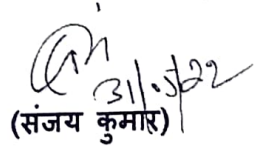 31/05/22
(संजय कुमार)